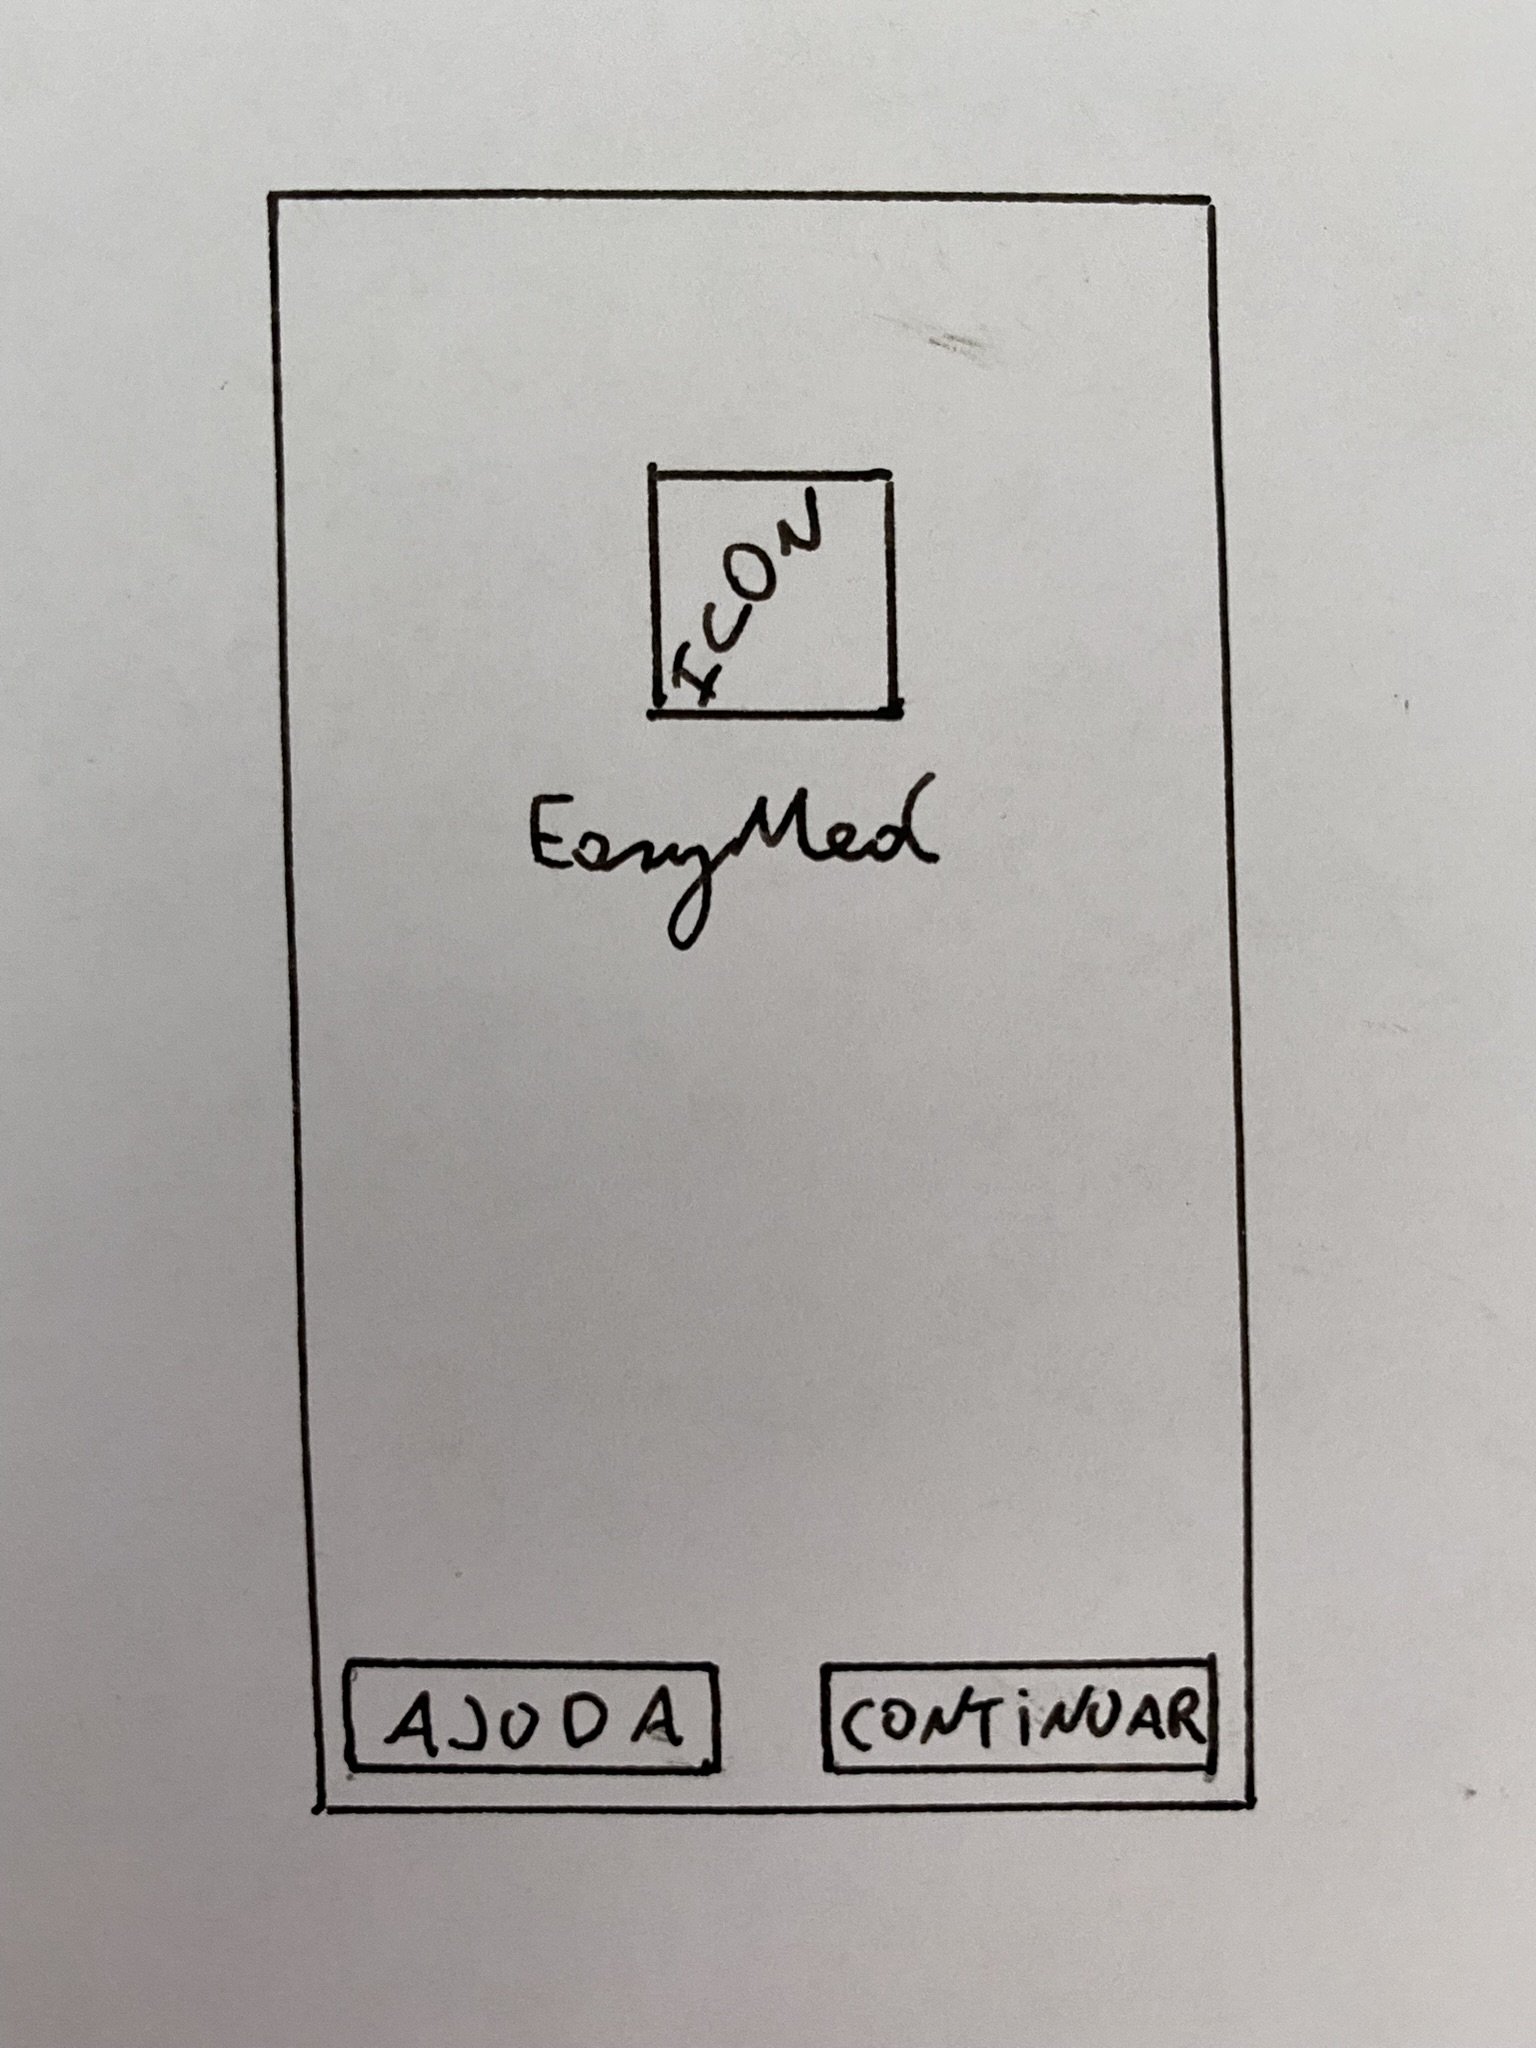 ICON
EasyMed
AJUDA
CONTiNUAR